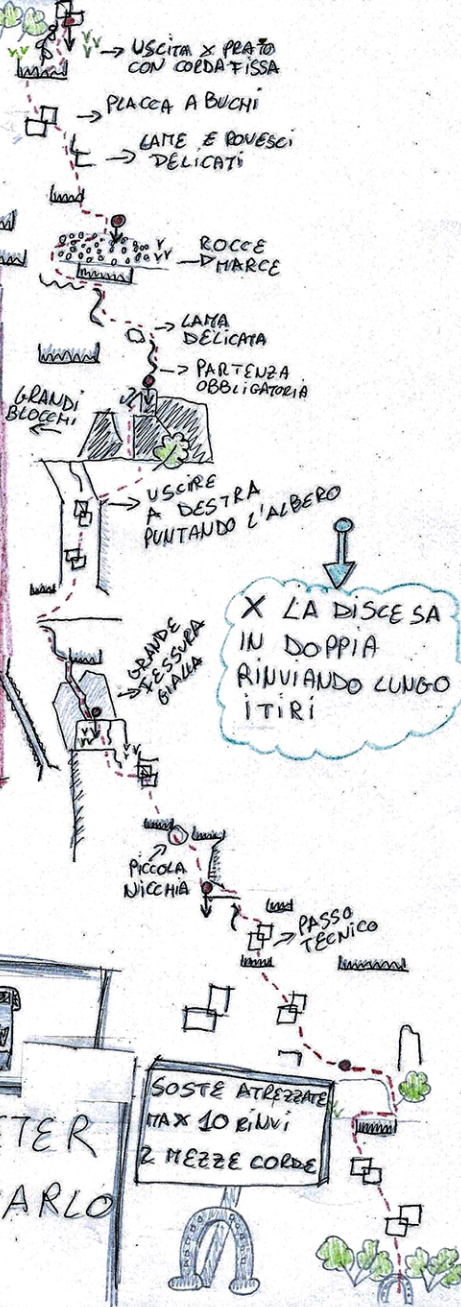 USCITA X PRATO
CON CORDA FISSA
PLACCA A BUCHI
LAME E ROVESCI
DELICATI
ROCCE
MARCE
LAMA
DELICATA
PARTENZA
OBBLIGATORIA
GRANDI
BLOCCHI
USCIRE
A DESTRA
PUNTANDO L'ALBERO
X LA DISCESA
IN DOPPIA
RINVIANDO LUNGO
I TIRI
GRANDE
FESSURA
GIALLA
PICCOLA
NICCHIA
PASSO
TECNICO
SOSTE ATREZZATE
MAX 10 RINVI
2 MEZZE CORDE